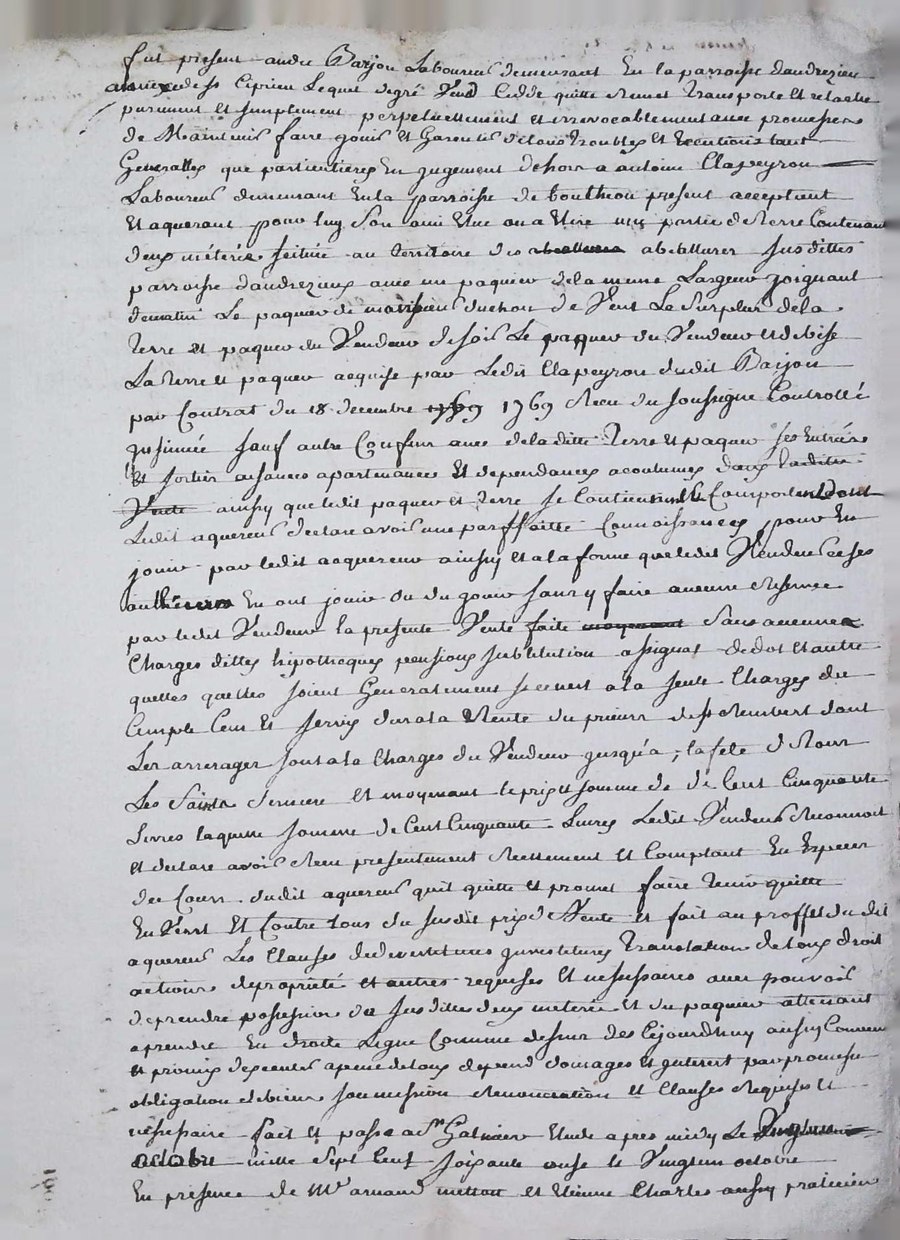 fut present andré Barjon Laboureur demeurant En la parroisse dandrezieu
annexe de st Ciprien Lequel degré Vend Cedde quitte Remet Transporte et relache
purement et simplement perpetuellement et irrevocablement avec promesse
de Maintenir faire jouir Et Garentir de tous Troubles et Evictions tant
Generalles que particulieres En jugement dehors a antoine Clapeyron
Laboureur demeurant En la parroisse de bouthéon present acceptant
Et aquerant pour luy Son ami Elue ou a Elire une partie de Terre Contenant
deux méterée scituée au territoire des abatturer Susdittes
parroisse dandrezieux avec un paquier de la meme Largeur joignant
de matin Le paquier de du chon de Vent Le Surplus de la
Terre et paquier du Vendeur de soir Le paquier du Vendeur et de bise
La Terre et paquier acquise par Ledit Clapeyron dudit Barjon
par Contrat du 18 decembre 1769 Recu du soussigné Controllé
insinuée sauf autre Confin avec de la ditte Terre et paquier ses Entrées
Et sorties aisances apartenances Et dependances acoutumés
Vente ainssy que ledit paquier et Terre se Contiennent et Comportent dont
Ledit aquereur declare avoir une parffaitte Connoissances pour En
jouir par ledit acquereur ainssy et a la forme que ledit Vendeur et ses
autheurs En ont joui ou du jouir sans y faire aucune Reserve
par ledit Vendeur la presente Vente faite moyenant Sans aucunes
Charges dittes hipotheques pensions substitution assignat de dot Et autre
quelles quelles soient Generalement a la seule Charges du
Simple Cens Et servis dus a la Rente du prieur de st Rembert dont
Les arrerages sont a la Charges du Vendeur jusqu'a la fete de Tous
Les Saints derniere Et moyenant le prix et somme de Cent Cinquante
Livres laquelle somme de Cent Cinquante Livres Ledit Vendeur Reconnoit
et declare avoir Recu presentement Reellement et Comptant En Especes
du Cours dudit aquereur quil quitte et promet faire tenir quitte
Envers Et Contre tous du susdit prix de Vente et fait au proffit dudit
aquereur Les Clauses de devestitures investitures Translation de tous droit
actions de propriété et autres requises Et nessessaires avec pouvoir
de prendre possession du susdittes deux meterée Et du paquier attenant
a prendre En droite Ligne Comme dessus des Cejourdhuy ainssy Convenu
et promis dexecuter a peine de tous depend domages Et interest par promesse
obligation de biens soumission Renonciation et Clauses Requises et
nessessaire fait et passé a st Galmier Etude apres midy Le Vingtun
octobre mille Sept Cent soixante onse le Vingtun octobre
En presence de Mr arnaud et Etienne Charles aussy praticien